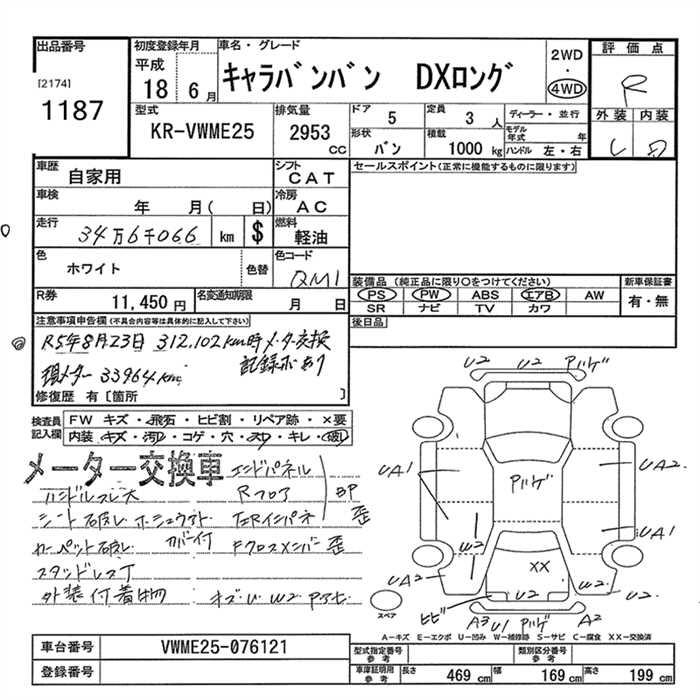 出品番号
[2174]
1187
初度登録年月
平成
18 6月
車名・グレード
キャラバンバン DXロング
2WD
・
4WD
評価点
R
外装 内装
型式
KR-VWME25
排気量
2953
CC
ドア
5
定員
3 人
ディーラー・並行
形状
バン
積載
1000 kg
モデル年式 年
ハンドル 左・右
車歴
自家用
シフト
CAT
セールスポイント(正常に機能するものに限ります)
車検
年 月( 日)
冷房
AC
走行
34万6千066 km $
燃料
軽油
色
ホワイト
色替
色コード
QM1
R券
11,450 円
名変通知期限
月 日
装備品 (純正品に限り〇をつけてください)
PS PW ABS エアB AW
SR ナビ TV カワ
新車保証書
有・無
後日品
注意事項申告欄(不具合内容等は具体的に記入して下さい)
R5年8月23日 312,102km時メーター交換
記録簿あり
現メーター 33964km
修復歴 有〔箇所 〕
検査員記入欄
FW キズ・飛石・ヒビ割・リペア跡・×要
内装 キズ・汚れ・コゲ・穴・スレ・キレ・破れ
メーター交換車
エンドパネル
ハンドルスレ大
Rフロア
BP
シート破レ
歪
カーペット破レ
カバー付
Fクロスメンバー 歪
スタッドレスT
外装付着物
キズ U W2
U2 U2 Pハゲ
UA1
Pハゲ
UA2
UA1
W2
W2
XX
UA2 W2
U2
ヒビ
W2
A3 U1 Pハゲ A2
スペア
A−キズ E−エクボ U−凹み W−補修跡 S−サビ C−腐食 XX−交換済
車台番号
VWME25-076121
登録番号
型式指定番号
参考
類別区分番号
参考
車庫証明用
参考
長さ 469 cm 幅 169 cm 高さ 199 cm